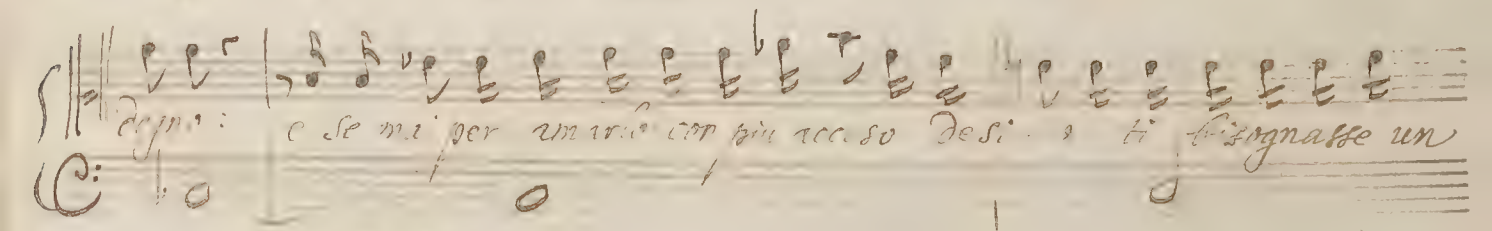 degno: e se mai per amarlo con più acceso desio ti bisognasse un